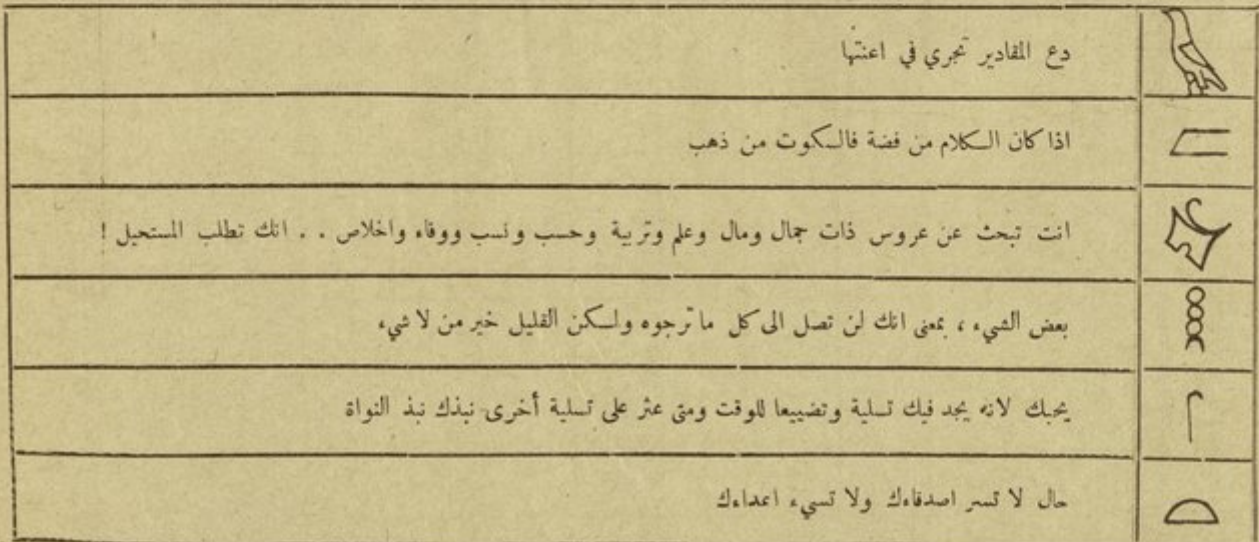 دع المقادير تجري في اعنتها
اذا كان الكلام من فضة فالسكوت من ذهب
انت تبحث عن عروس ذات جمال ومال وعلم وتربية وحسب ونسب ووفاء واخلاص . . انك تطلب المستحيل !
بعض الشيء ، بمعنى انك لن تصل الى كل ما ترجوه ولكن القليل خير من لا شيء
يحبك لانه يجد فيك تسلية وتضييعا للوقت ومتى عثر على تسلية أخرى نبذك نبذ النواة
حال لا تسر اصدقاءك ولا تسيء اعداءك